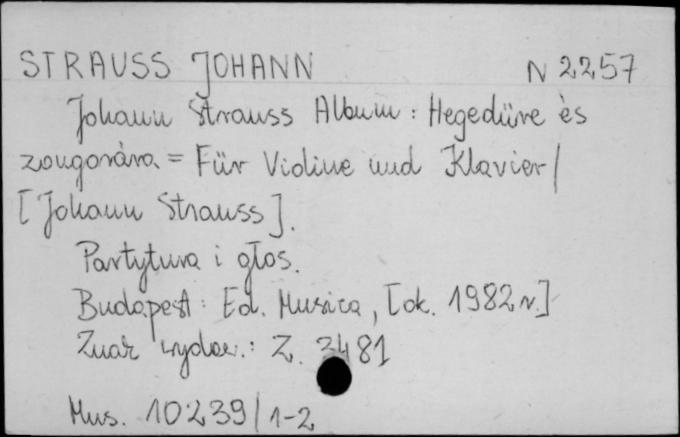 STRAUSS JOHANN N 2257
Johann Strauss Album : Hegedüre ès
zongorára = Für Violine und Klavier /
[Johann Strauss].
Partytura i głos.
Budapest : Ed. Musica, [ok. 1982 r.]
Znak wydaw. : Z. 3481
Mus. 10239/1-2